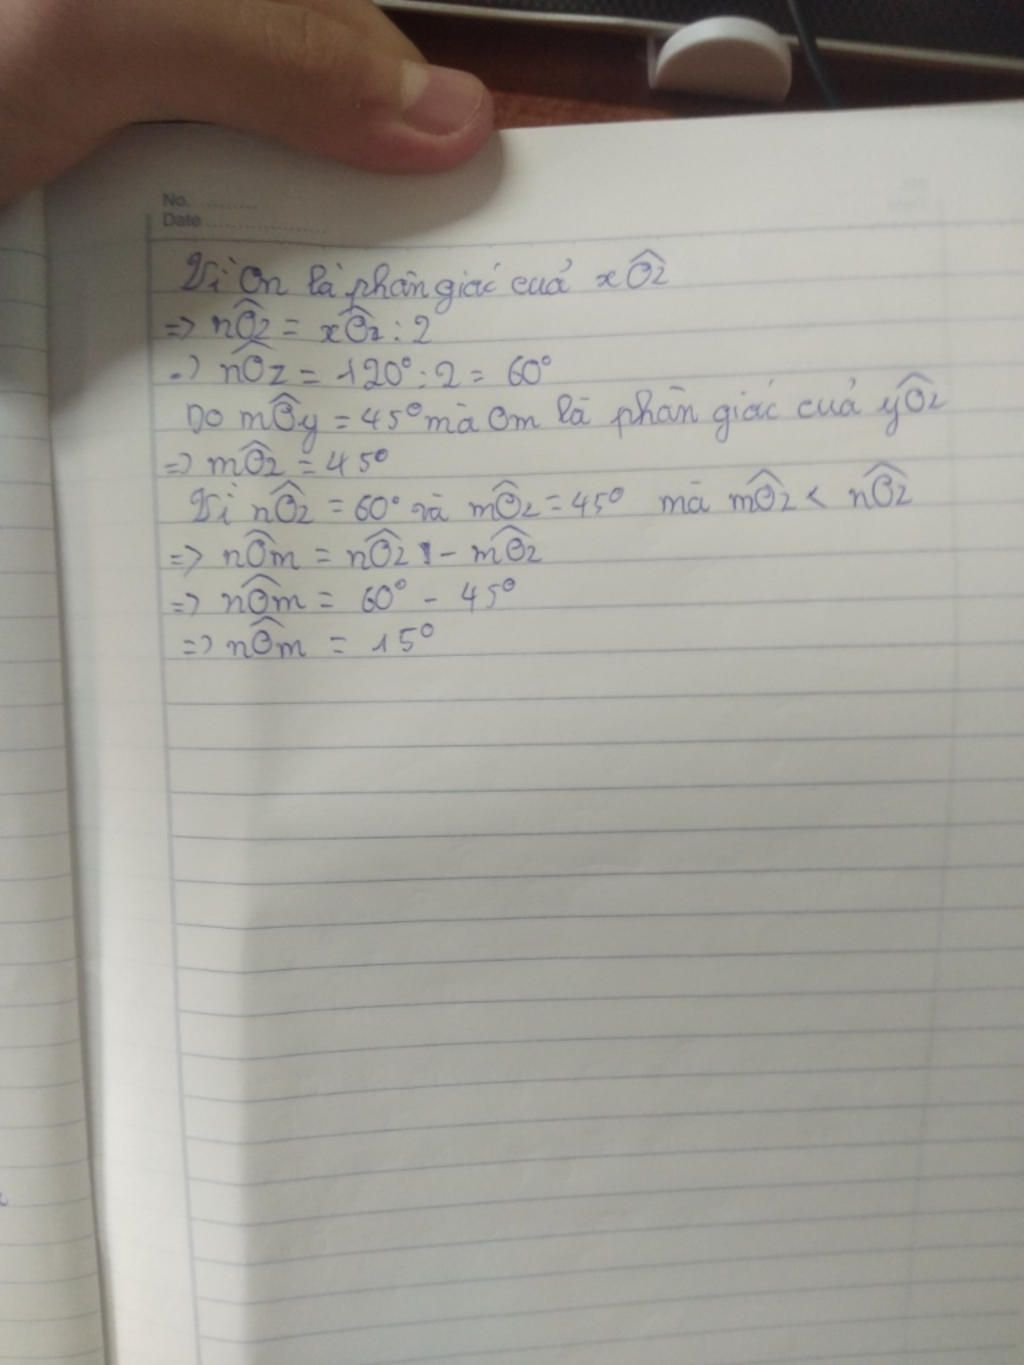 No. ............
Date .....................
Vì On là phân giác cuả xÔz
=> nÔz = xÔz : 2
=> nÔz = 120° : 2 = 60°
Do mÔy = 45° mà Om là phân giác cuả yÔz
=> mÔz = 45°
Vì nÔz = 60° và mÔz = 45° mà mÔz < nÔz
=> nÔm = nÔz - mÔz
=> nÔm = 60° - 45°
=> nÔm = 15°